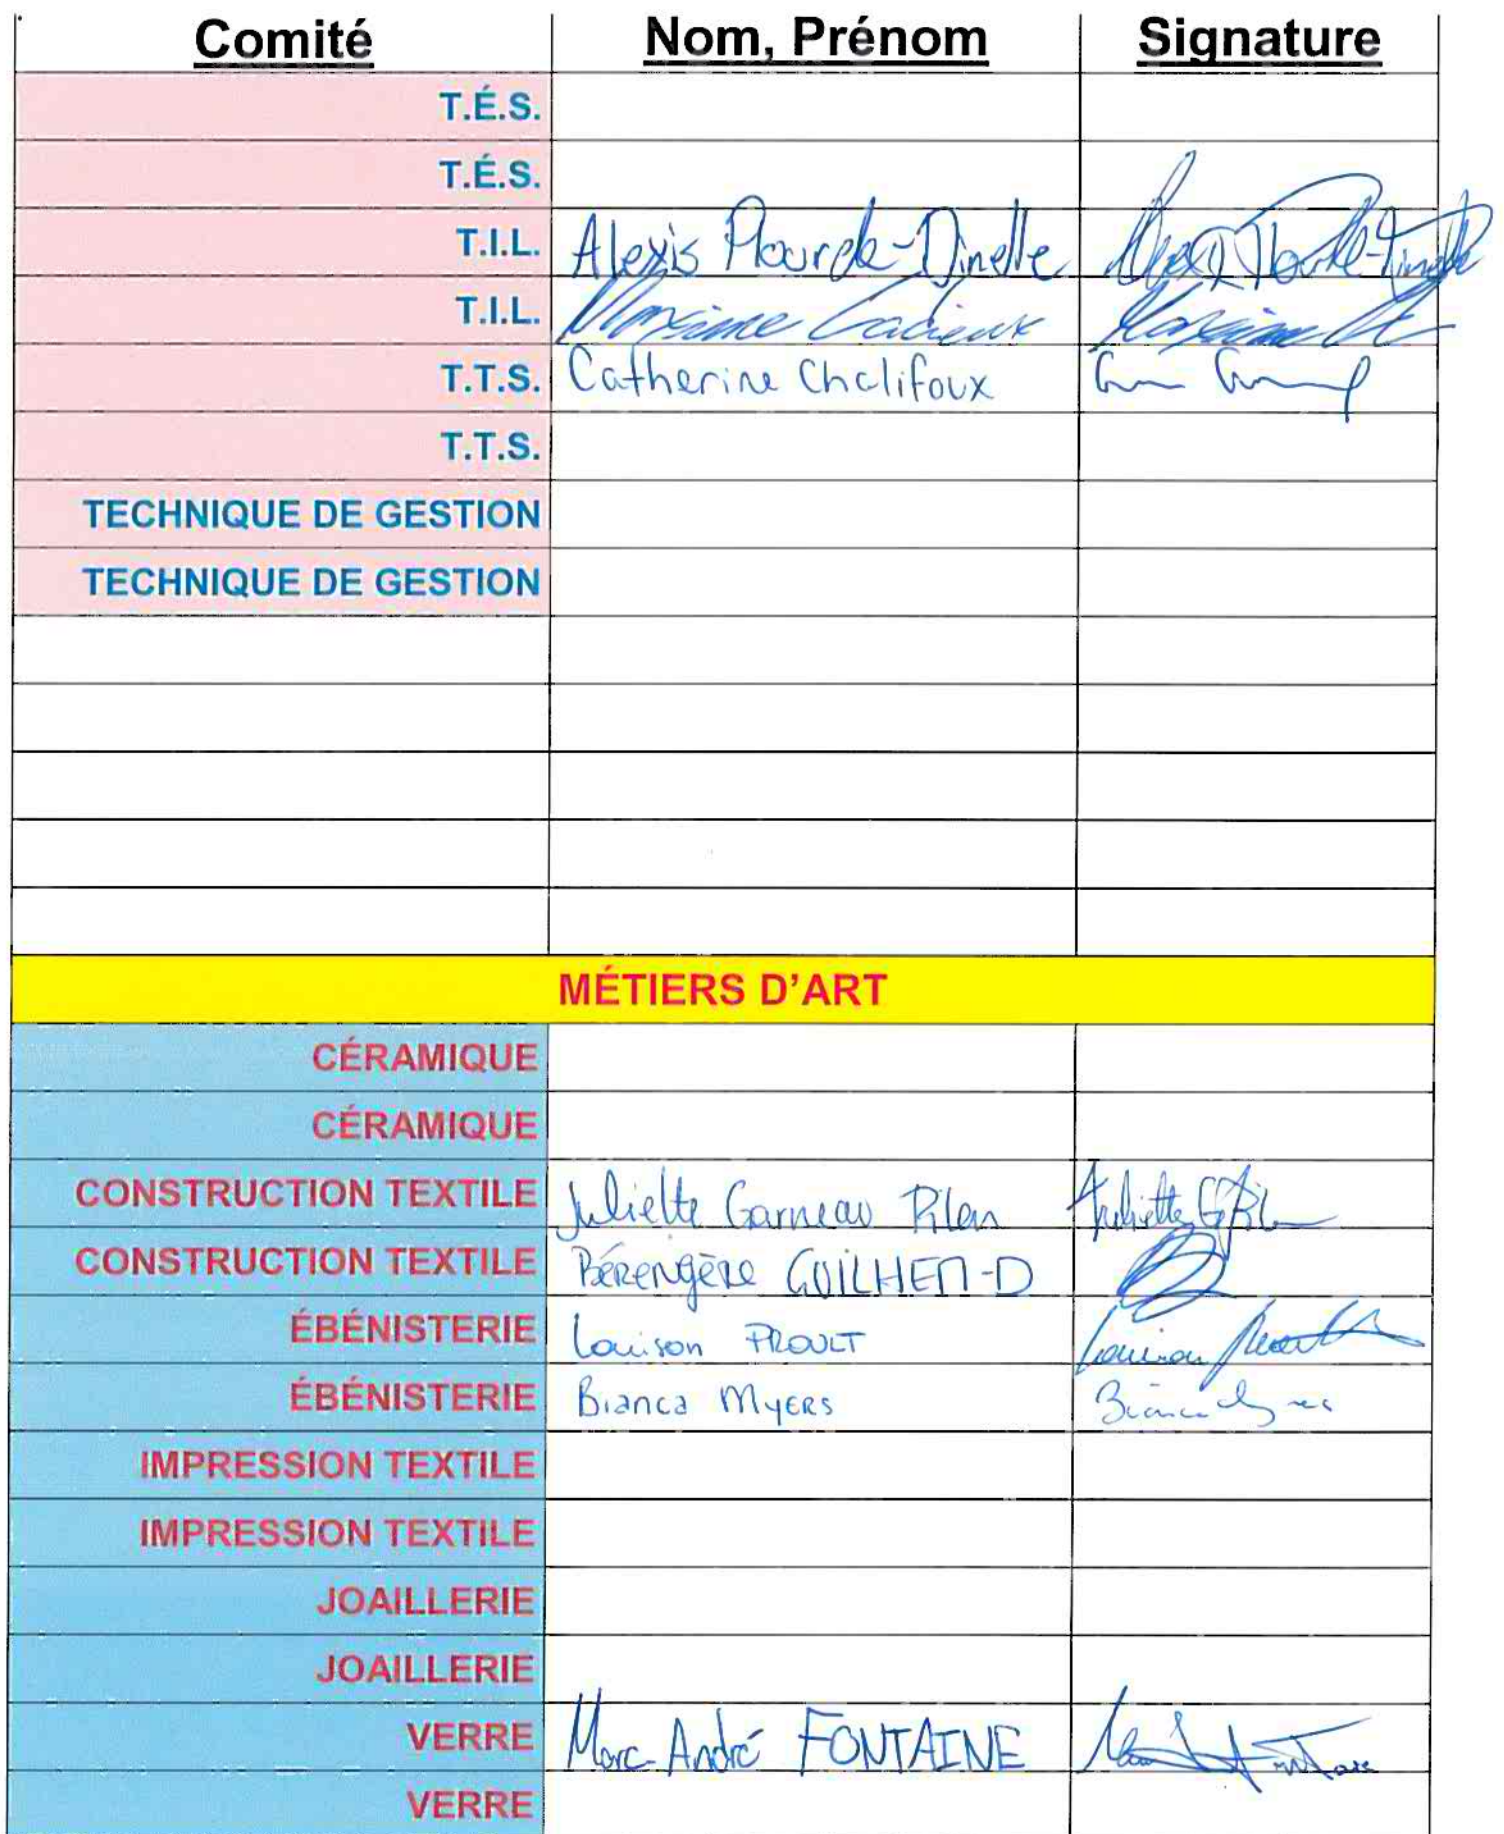 Comité Nom, Prénom Signature
T.É.S.
T.É.S.
T.I.L. Alexis Plourde-Dinelle
T.I.L. Maxime Cadieux
T.T.S. Catherine Chalifoux
T.T.S.
TECHNIQUE DE GESTION
TECHNIQUE DE GESTION
MÉTIERS D'ART
CÉRAMIQUE
CÉRAMIQUE
CONSTRUCTION TEXTILE Juliette Garneau Pilon
CONSTRUCTION TEXTILE Bérengère GUILHEM-D
ÉBÉNISTERIE Louison PROULT
ÉBÉNISTERIE Bianca Myers Bianca Myers
IMPRESSION TEXTILE
IMPRESSION TEXTILE
JOAILLERIE
JOAILLERIE
VERRE Marc-André FONTAINE
VERRE